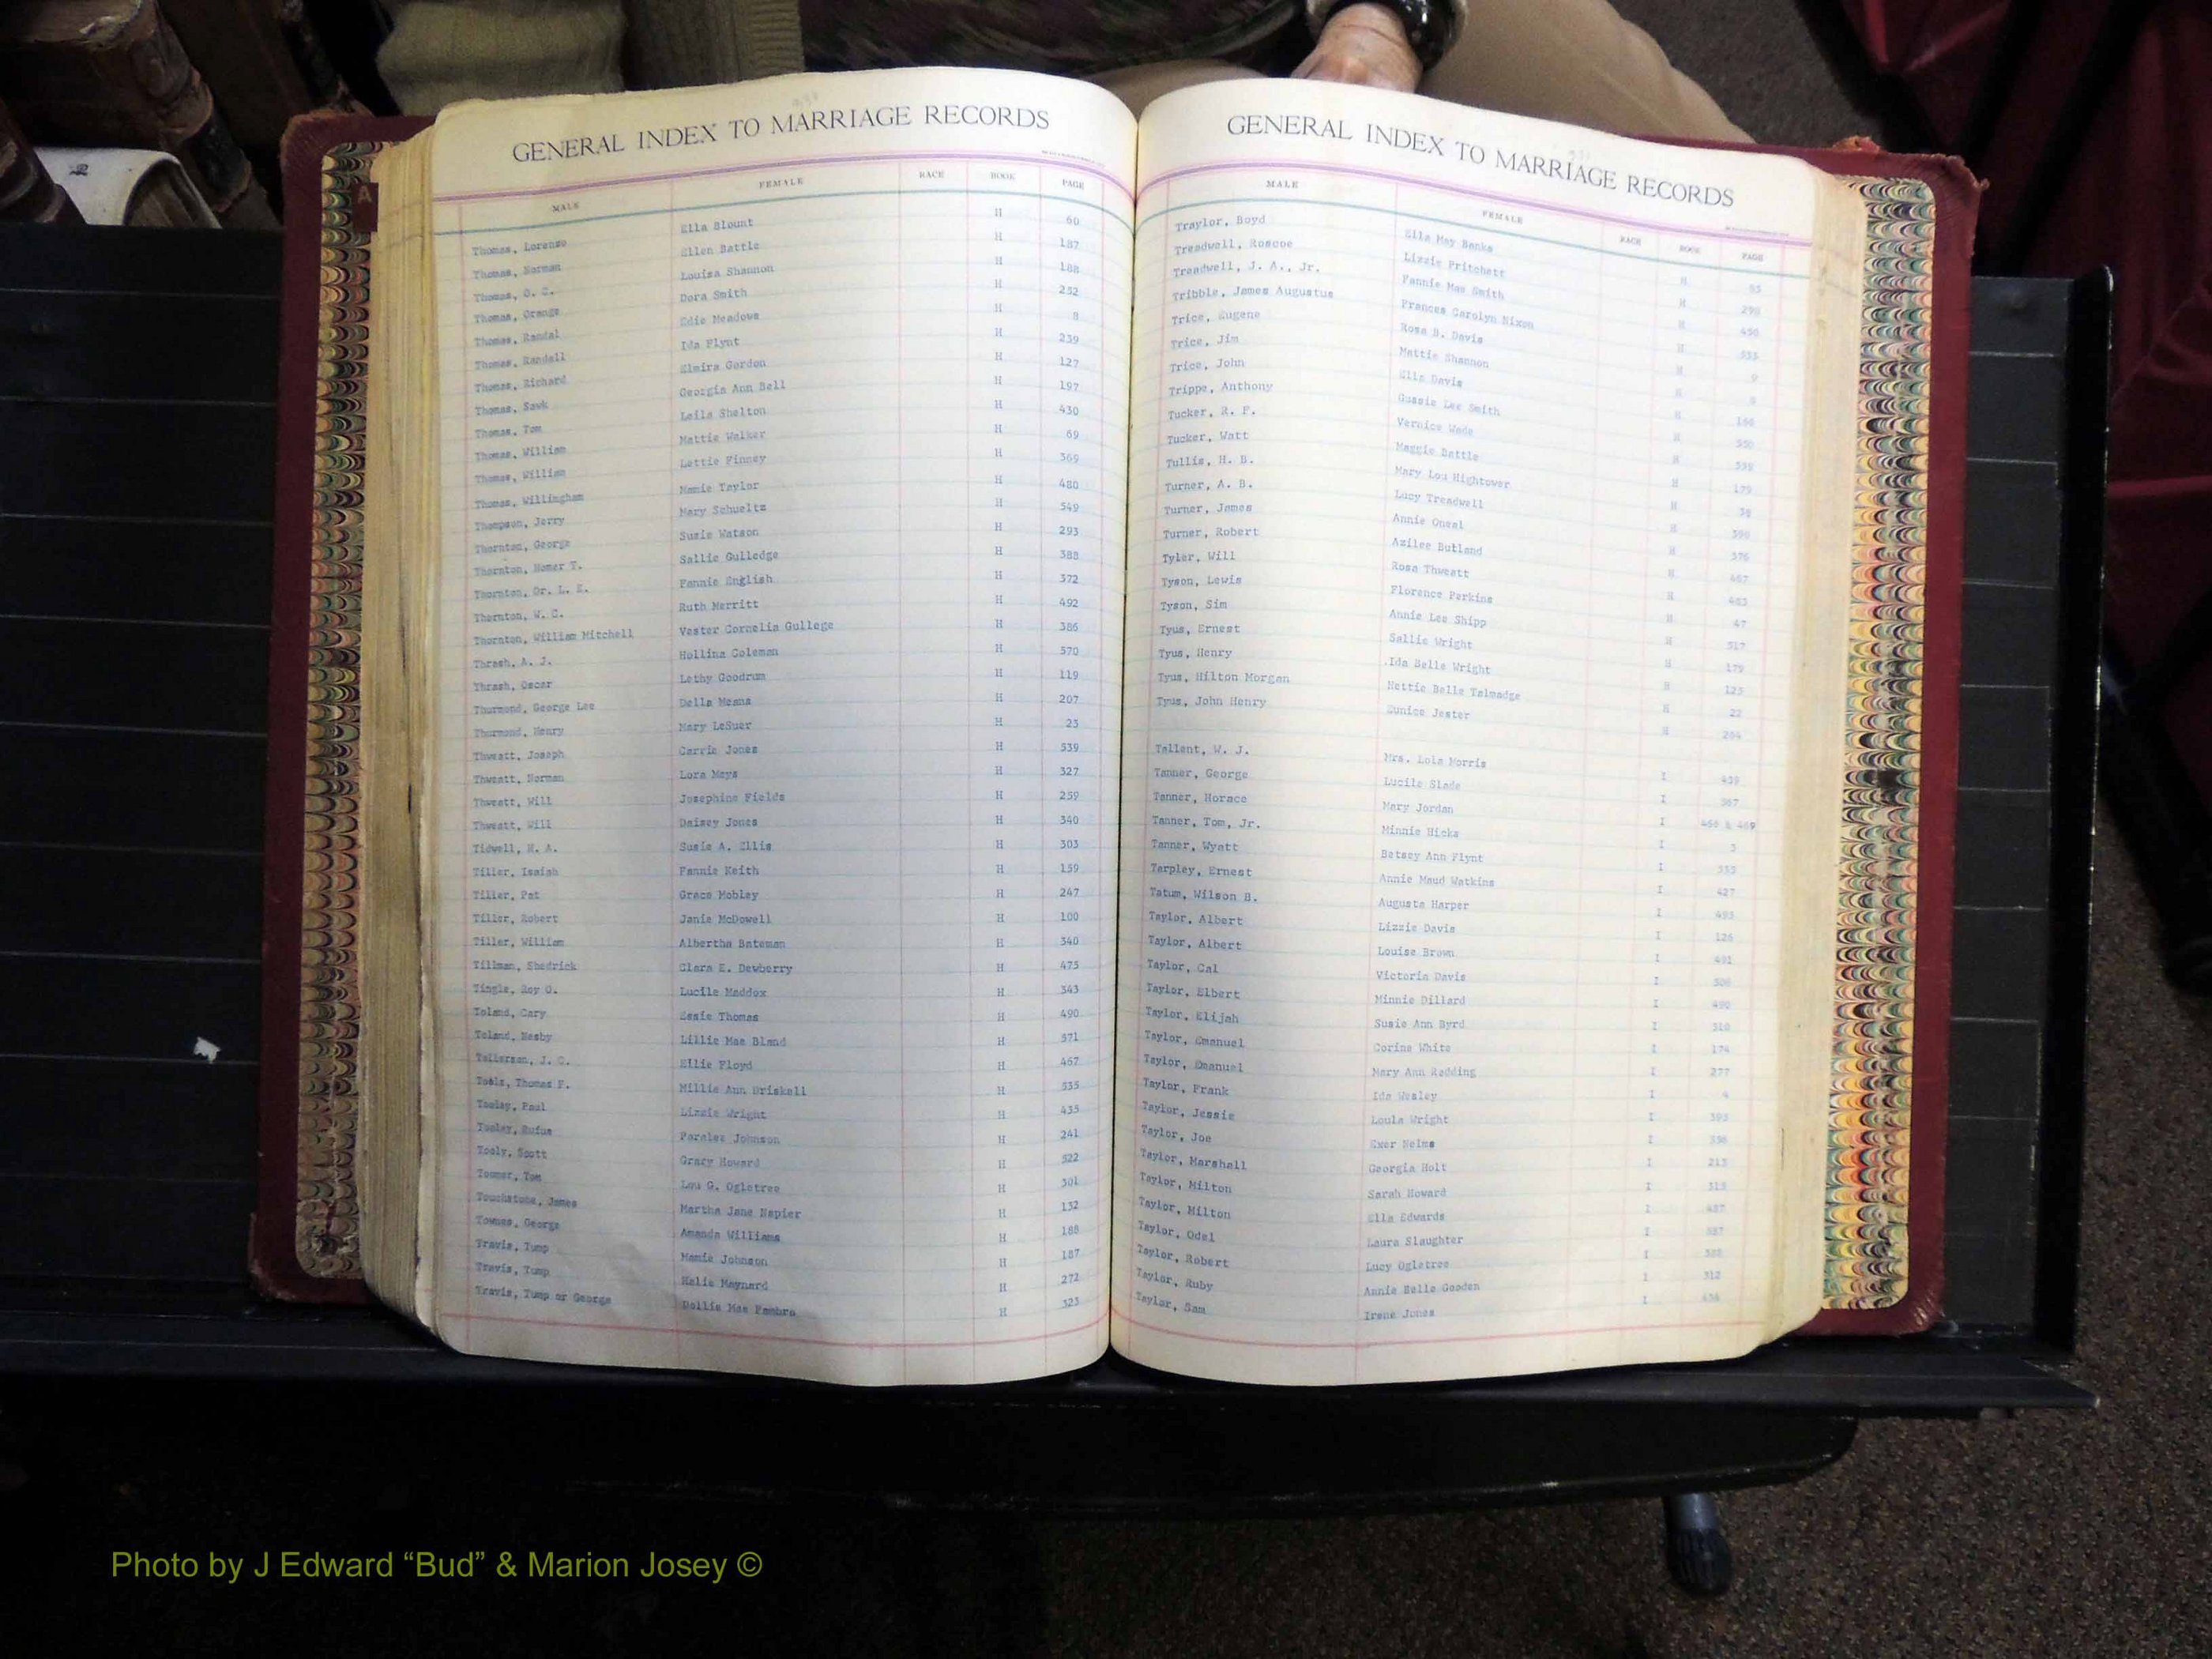 GENERAL INDEX TO MARRIAGE RECORDS
MALE FEMALE RACE BOOK PAGE
Thomas, Lorenzo Ella Blount H 60
Thomas, Norman Ellen Battle H 187
Thomas, O. C. Louisa Shannon H 188
Thomas, Orange Dora Smith H 252
Thomas, Randal Edie Meadows H 8
Thomas, Randall Ida Flynt H 239
Thomas, Richard Elmira Gordon H 127
Thomas, Sawk Georgia Ann Bell H 197
Thomas, Tom Leila Shelton H 430
Thomas, William Mattie Walker H 69
Thomas, William Lettie Finney H 369
Thomas, Willingham Mamie Taylor H 480
Thompson, Jerry Mary Schueltz H 549
Thornton, George Susie Watson H 293
Thornton, Homer T. Sallie Gulledge H 388
Thornton, Dr. L. E. Fannie English H 372
Thornton, W. C. Ruth Merritt H 492
Thornton, William Mitchell Vester Cornelia Gullege H 386
Thrash, A. J. Hollina Coleman H 570
Thrash, Oscar Lethy Goodrum H 119
Thurmond, George Lee Della Means H 207
Thurmond, Henry Mary LeSuer H 23
Thweatt, Joseph Carrie Jones H 539
Thweatt, Norman Lora Mays H 327
Thweatt, Will Josephine Fields H 259
Thweatt, Will Daisey Jones H 340
Tidwell, H. A. Susie A. Ellis H 303
Tiller, Isaiah Fannie Keith H 159
Tiller, Pat Grace Mobley H 247
Tiller, Robert Janie McDowell H 100
Tiller, William Albertha Bateman H 340
Tillman, Shedrick Clara E. Dewberry H 475
Tingle, Roy O. Lucile Maddox H 343
Toland, Cary Essie Thomas H 490
Toland, Nesby Lillie Mae Bland H 571
Tollerson, J. C. Ellie Floyd H 467
Toole, Thomas F. Millie Ann Driskell H 535
Tooley, Paul Lizzie Wright H 435
Tooley, Rufus Paralee Johnson H 241
Tooly, Scott Gracy Howard H 522
Toomer, Tom Lou G. Ogletree H 301
Touchstone, James Martha Jane Napier H 132
Townes, George Amanda Williams H 188
Travis, Tump Mamie Johnson H 187
Travis, Tump Halie Maynard H 272
Travis, Tump or George Dollie Mae Fambro H 323
GENERAL INDEX TO MARRIAGE RECORDS
MALE FEMALE RACE BOOK PAGE
Traylor, Boyd Ella May Banks H
Treadwell, Roscoe Lizzie Pritchett H 298
Treadwell, J. A., Jr. Fannie Mae Smith H 450
Tribble, James Augustus Frances Carolyn Nixon H 555
Trice, Eugene Rosa B. Davis H 9
Trice, Jim Mattie Shannon
Trice, John Ella Davis H
Trippe, Anthony Gussie Lee Smith H
Tucker, R. F. Vernice Wade H
Tucker, Watt Maggie Battle H 179
Tullis, H. B. Mary Lou Hightower H
Turner, A. B. Lucy Treadwell H
Turner, James Annie Oneal H 376
Turner, Robert Azilee Butland H 467
Tyler, Will Rosa Thweatt H
Tyson, Lewis Florence Perkins H 47
Tyson, Sim Annie Lee Shipp H 517
Tyus, Ernest Sallie Wright H 179
Tyus, Henry Ida Belle Wright H 123
Tyus, Hilton Morgan Nettie Belle Talmadge H 22
Tyus, John Henry Eunice Jester H 204
Tallent, W. J. Mrs. Lola Morris I 439
Tanner, George Lucile Slade I 567
Tanner, Horace Mary Jordan I 466 & 469
Tanner, Tom, Jr. Minnie Hicks I 3
Tanner, Wyatt Betsey Ann Flynt I 555
Tarpley, Ernest Annie Maud Watkins I 427
Tatum, Wilson B. Augusta Harper I 493
Taylor, Albert Lizzie Davis I 126
Taylor, Albert Louise Brown I 491
Taylor, Cal Victoria Davis I 508
Taylor, Elbert Minnie Dillard I 490
Taylor, Elijah Susie Ann Byrd I 518
Taylor, Emanuel Corine White I 174
Taylor, Emanuel Mary Ann Redding I 277
Taylor, Frank Ida Wesley I 4
Taylor, Jessie Loula Wright I 393
Taylor, Joe Exer Nelms I 338
Taylor, Marshall Georgia Holt I 213
Taylor, Milton Sarah Howard I 313
Taylor, Milton Ella Edwards I 437
Taylor, Odel Laura Slaughter I
Taylor, Robert Lucy Ogletree I
Taylor, Ruby Annie Belle Gooden I 312
Taylor, Sam Irene Jones I
A
Photo by J Edward “Bud” & Marion Josey ©